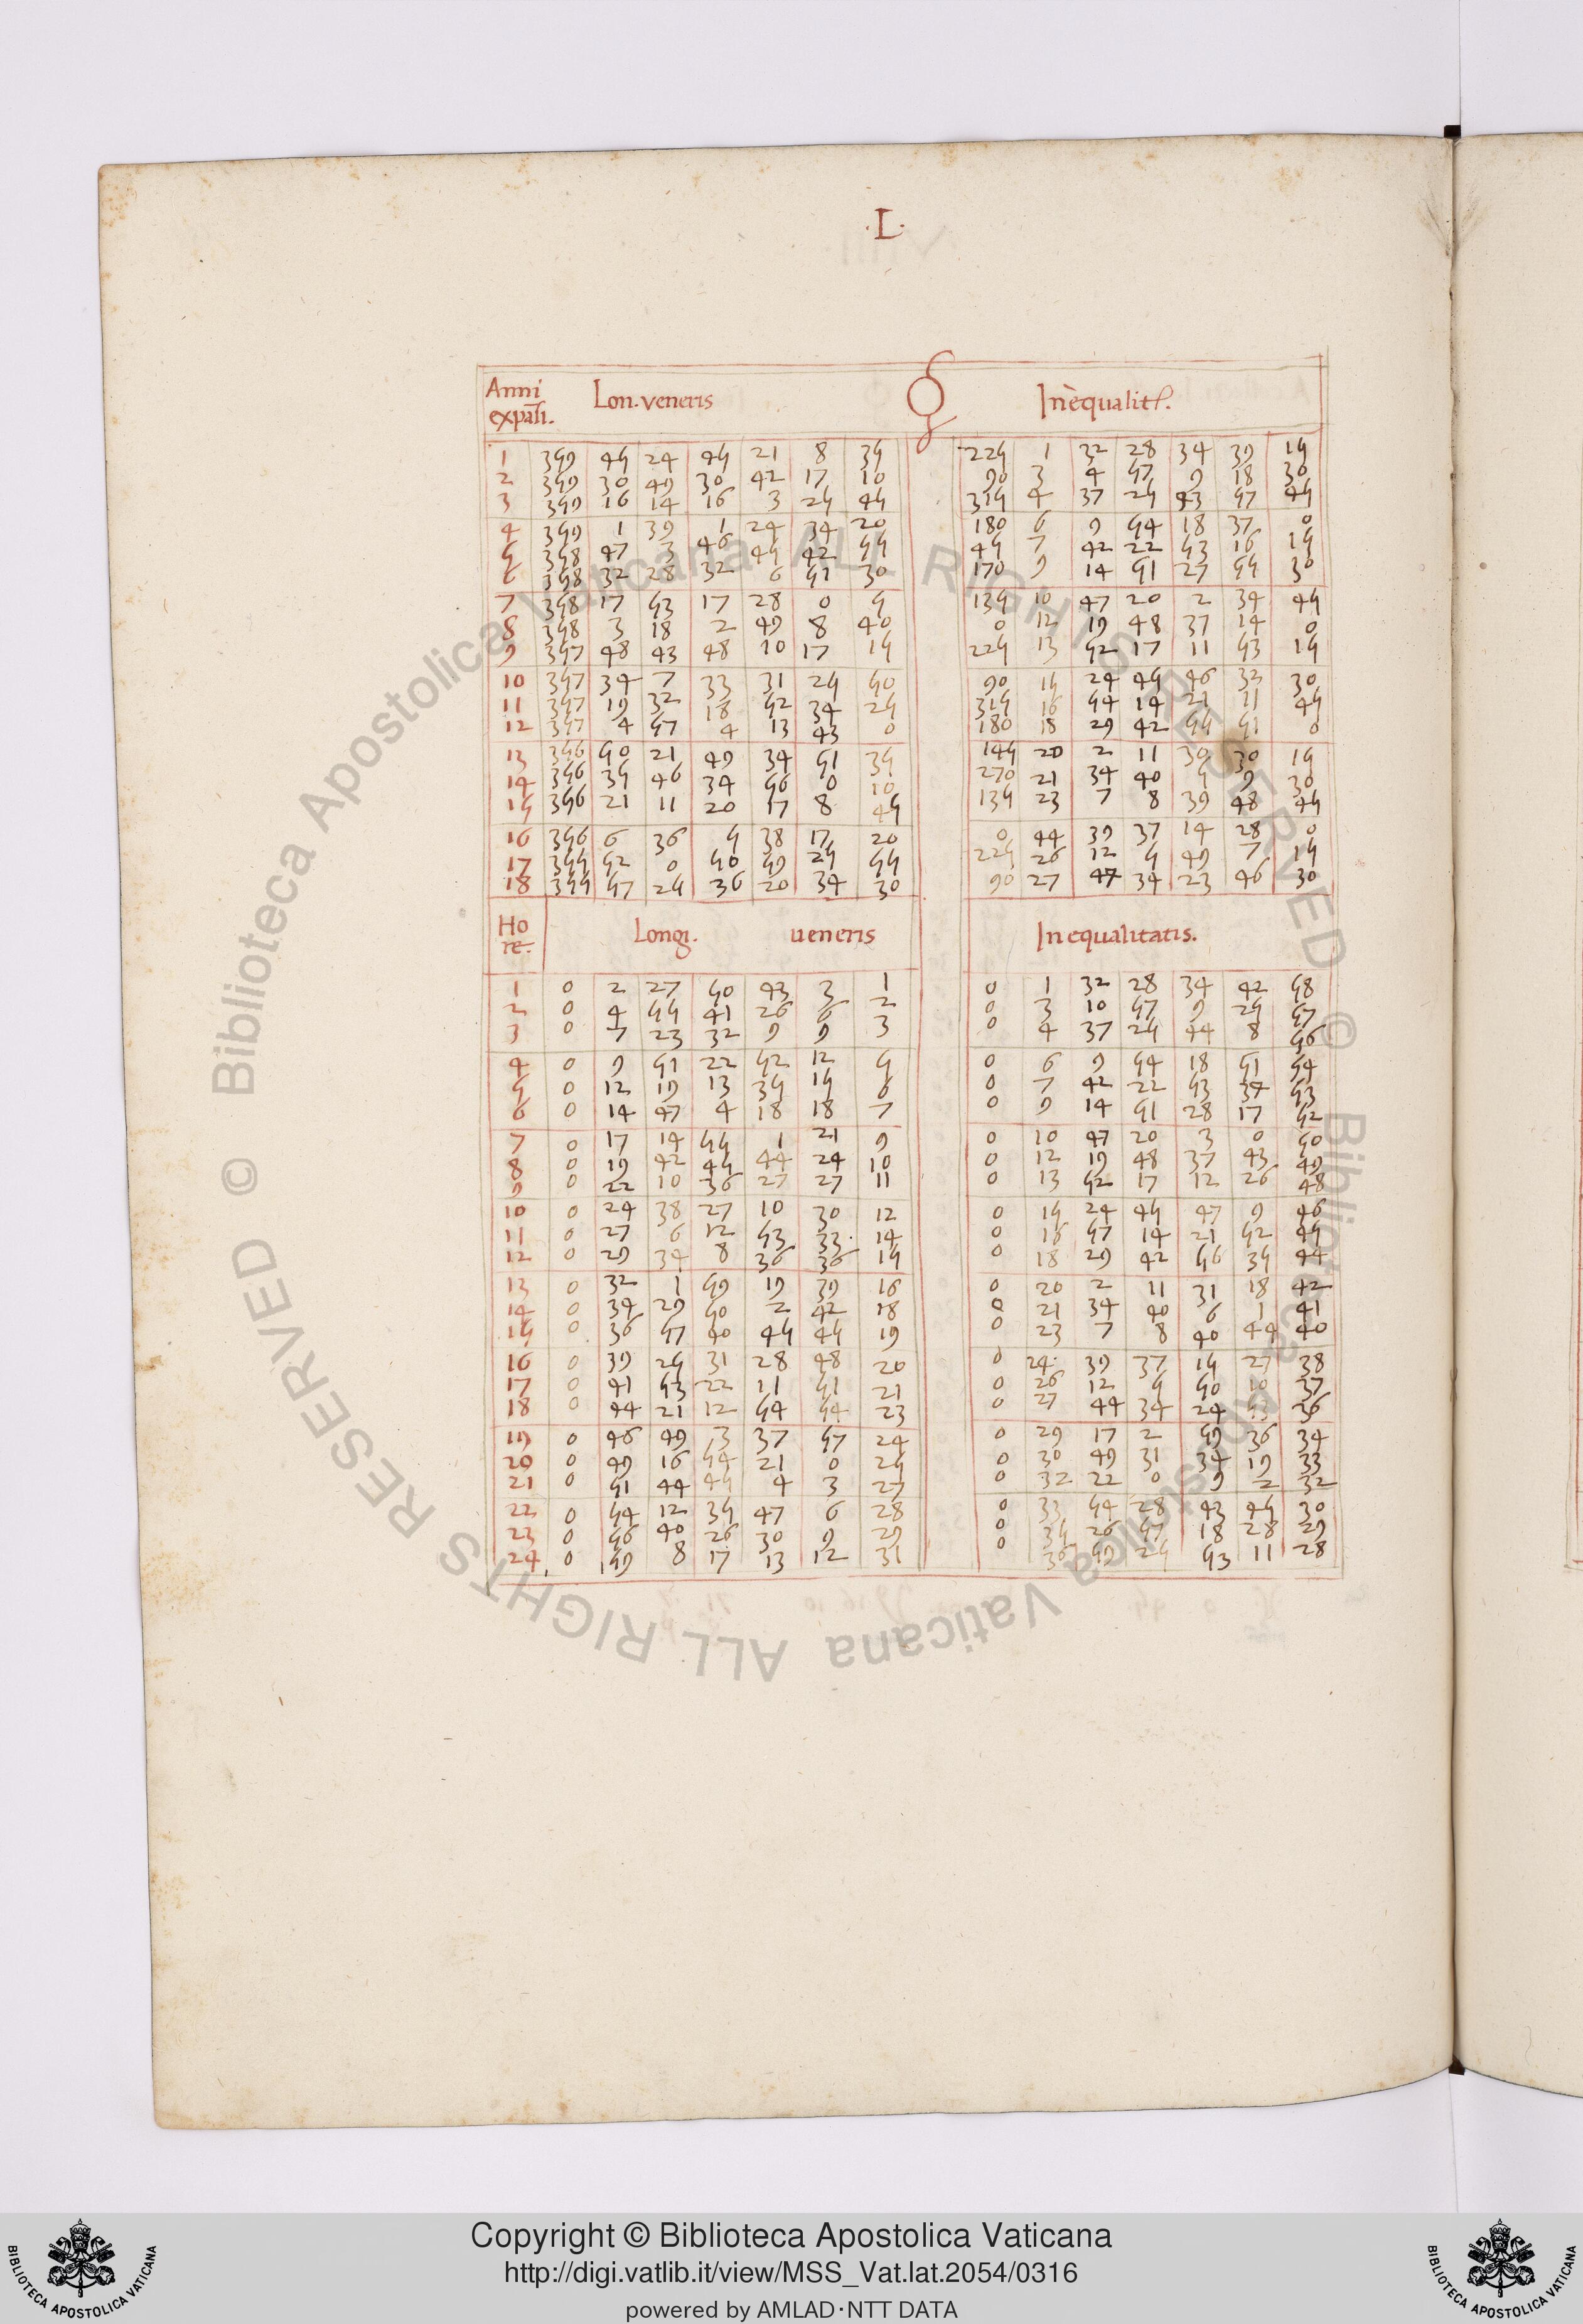 .L.
Anni expasi. Lon. veneris ♀ Inequalit.
1 359 45 24 45 21 8 35 225 1 32 28 34 39 15
2 359 30 49 30 42 17 10 90 3 4 57 9 18 30
3 359 16 14 16 3 25 45 315 4 37 25 43 57 45
4 359 1 39 1 24 34 20 180 6 9 54 18 37 0
5 358 47 3 46 45 42 55 45 7 42 22 53 16 15
6 358 32 28 32 6 51 30 170 9 14 51 27 55 30
7 358 17 53 17 28 0 5 135 10 47 20 2 34 45
8 358 3 18 2 49 8 40 0 12 19 48 37 14 0
9 357 48 43 48 10 17 15 225 13 52 17 11 53 15
10 357 34 7 33 31 25 50 90 15 24 45 46 32 30
11 357 19 32 18 52 34 25 315 16 54 14 21 11 45
12 357 4 57 4 13 43 0 180 18 29 42 55 51 0
13 356 50 21 49 34 51 35 145 20 2 11 30 30 15
14 356 35 46 34 56 0 10 270 21 34 40 5 9 30
15 356 21 11 20 17 8 45 135 23 7 8 39 48 45
16 356 6 36 5 38 17 20 0 44 39 37 14 28 0
17 355 52 0 50 59 25 55 225 26 12 5 49 7 15
18 355 57 25 36 20 34 30 90 27 47 34 23 46 30
Ho re. Longi. ueneris Inequalitatis.
1 0 2 27 50 43 3 1 0 1 32 28 34 42 58
2 0 4 55 41 26 6 2 0 3 10 57 9 25 57
3 0 7 23 32 9 9 3 0 4 37 25 44 8 56
4 0 9 51 22 52 12 5 0 6 9 54 18 51 54
5 0 12 19 13 35 15 6 0 7 42 22 53 34 53
6 0 14 47 4 18 18 7 0 9 14 51 28 17 52
7 0 17 14 55 1 21 9 0 10 47 20 3 0 50
8 0 19 42 45 44 24 10 0 12 19 48 37 43 49
9 0 22 10 36 27 27 11 0 13 52 17 12 26 48
10 0 24 38 27 10 30 12 0 15 24 45 47 9 46
11 0 27 6 12 53 33 14 0 16 57 14 21 52 45
12 0 29 34 8 36 36 15 0 18 29 42 56 35 44
13 0 32 1 59 19 39 16 0 20 2 11 31 18 42
14 0 34 29 50 2 42 18 0 21 34 40 6 1 41
15 0 36 57 40 45 45 19 0 23 7 8 40 44 40
16 0 39 25 31 28 48 20 0 24 39 37 15 27 38
17 0 41 53 22 11 51 21 0 26 12 5 50 10 37
18 0 44 21 12 54 54 23 0 27 44 34 24 53 36
19 0 46 49 3 37 57 24 0 29 17 2 59 36 34
20 0 49 16 54 21 0 25 0 30 49 31 34 19 33
21 0 51 44 45 4 3 27 0 32 22 0 9 2 32
22 0 54 12 35 47 6 28 0 33 54 28 43 45 30
23 0 56 40 26 30 9 29 0 35 26 57 18 28 29
24 0 59 8 17 13 12 31 0 36 59 25 53 11 28
© Biblioteca Apostolica Vaticana ALL RIGHTS RESERVED © Biblioteca Apostolica Vaticana ALL RIGHTS RESERVED
BIBLIOTECA APOSTOLICA VATICANA
Copyright © Biblioteca Apostolica Vaticana
http://digi.vatlib.it/view/MSS_Vat.lat.2054/0316
powered by AMLAD·NTT DATA
BIBLIOTECA APOSTOLICA VATICANA